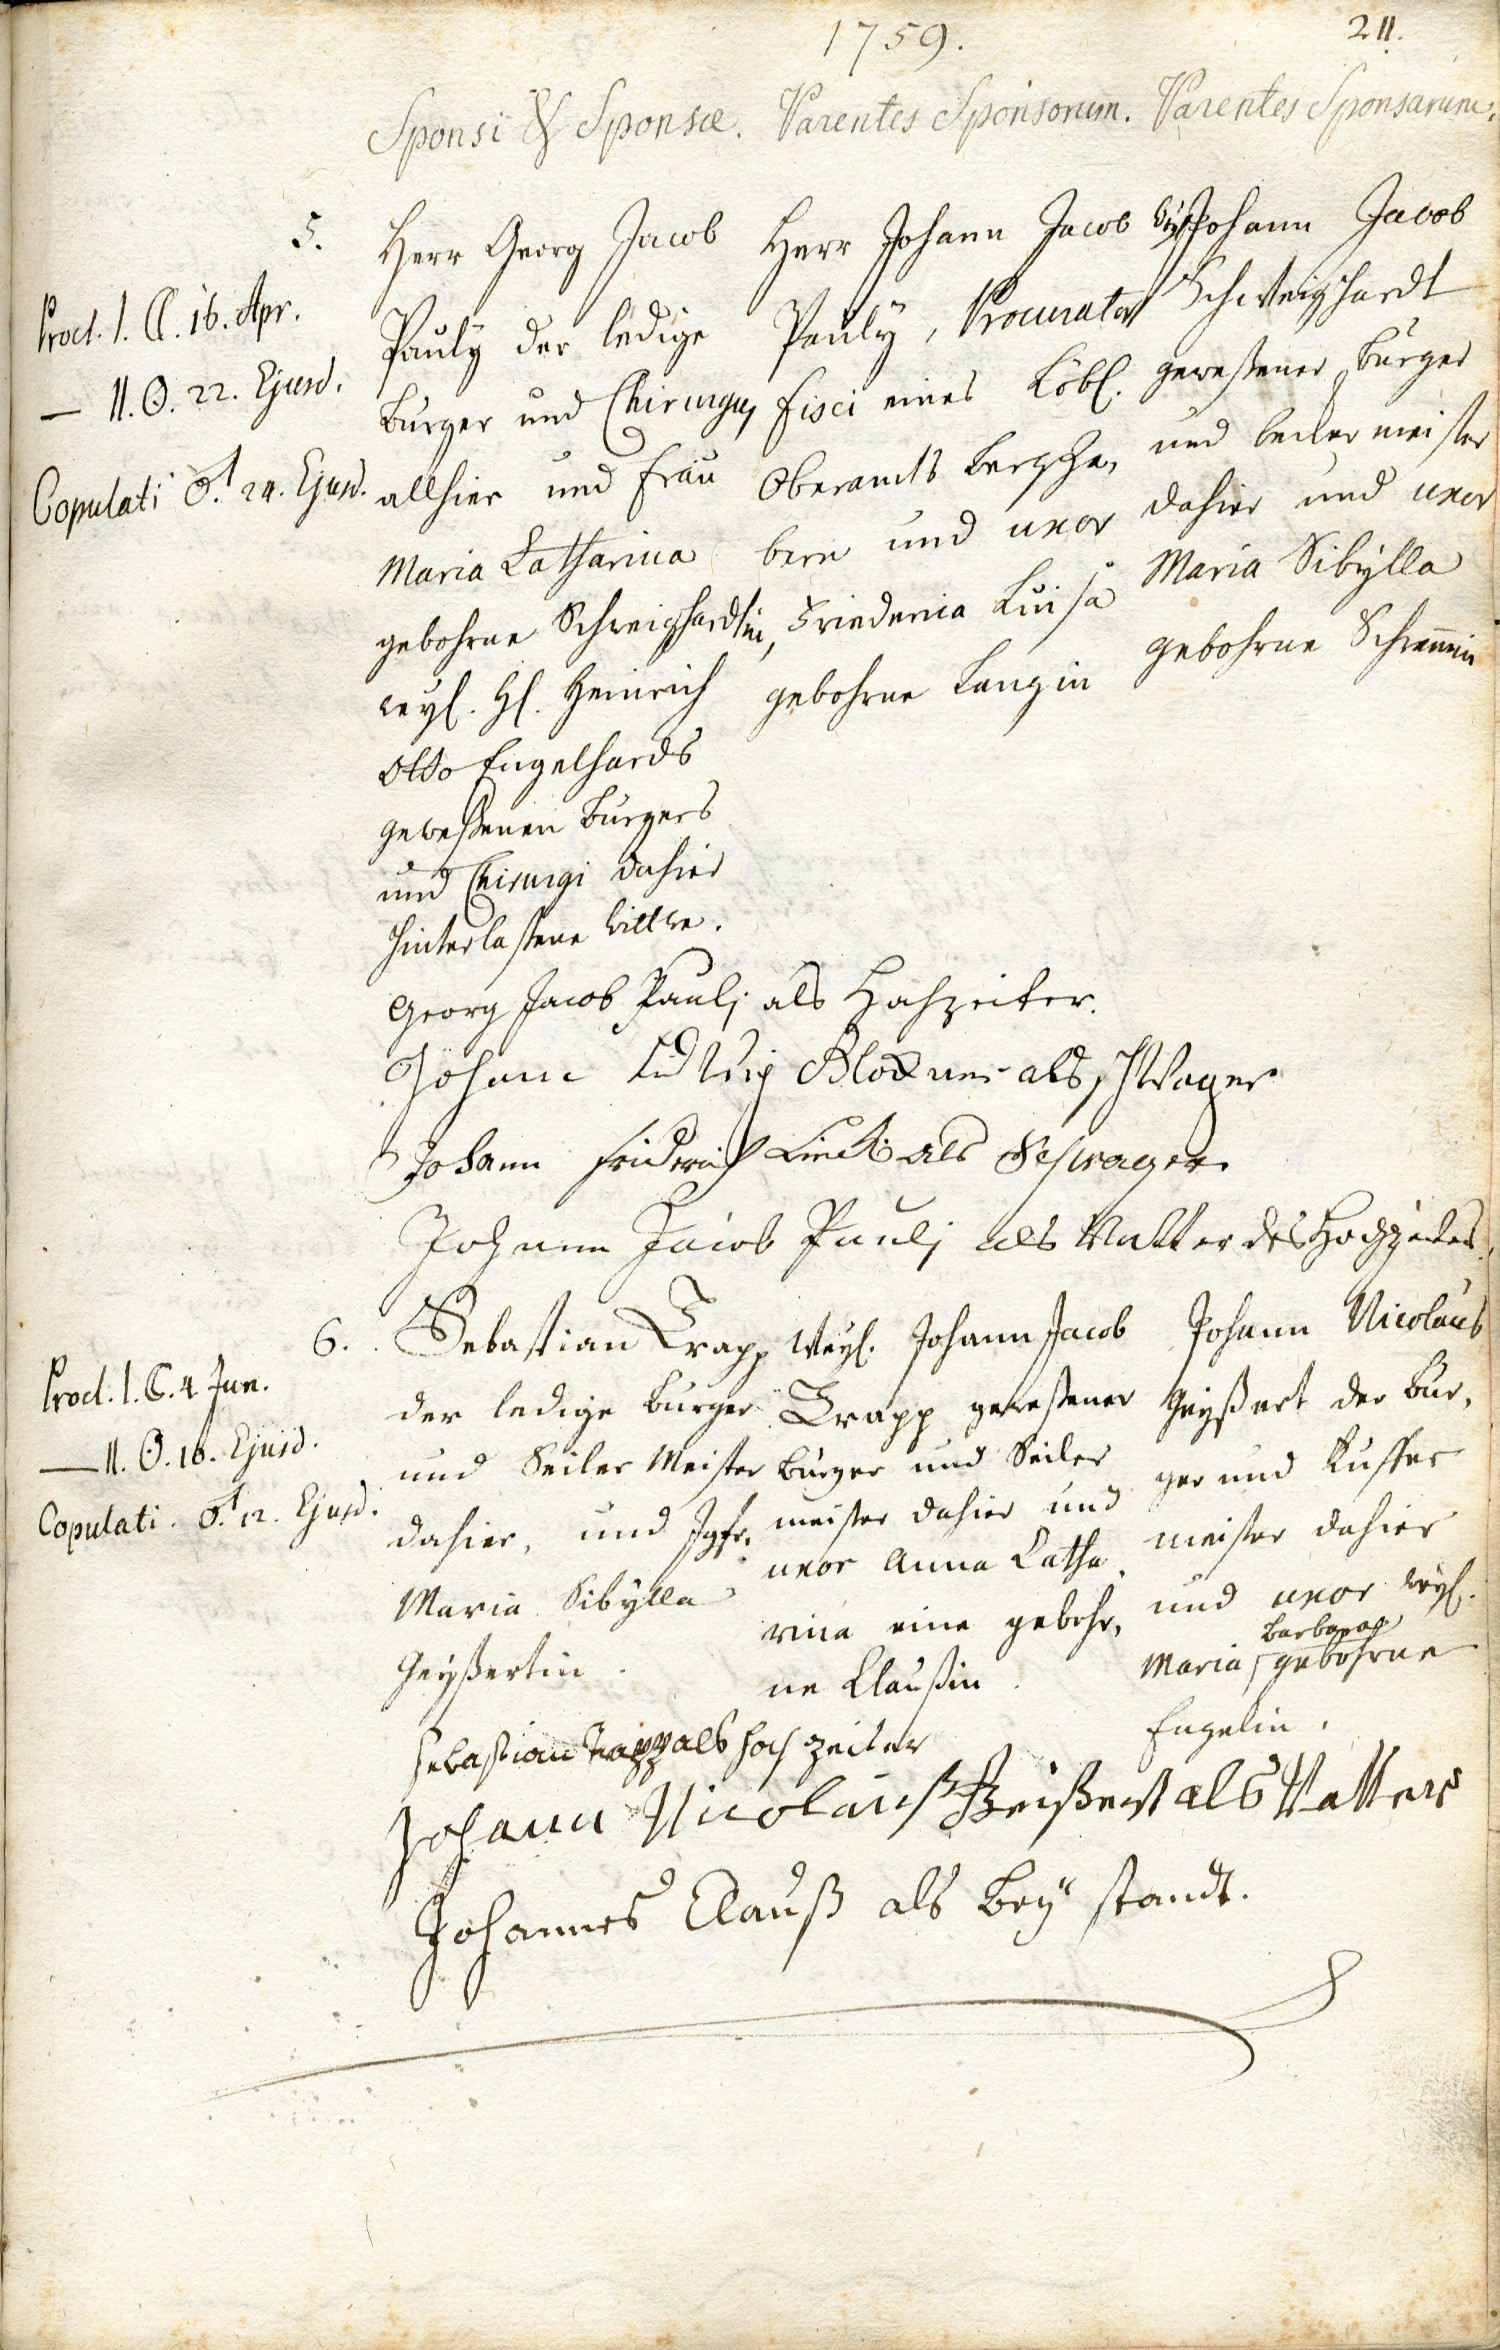 1759.
211.
Sponsi & Sponsæ.
Parentes Sponsorum.
Parentes Sponsarum.
5.
Procl. I. 16. Apr.
— II. 22. Ejusd.
Copulati 24. Ejusd.
Herr Georg Jacob
Pauly der ledige
Burger und Chirurgus
allhier und Frau
Maria Catharina
gebohrne Schweighardtin,
weyl. H. Heinrich
Otto Engelhards
gewesenen Burgers
und Chirurgi dahier
hinterlassene Wittwe.
Herr Johann Jacob
Pauly, Procurator
Fisci eines Löbl.
Oberamts Bergza,
bern und uxor
Friederica Luisa
gebohrne Langin
Weyl. Johann Jacob
Schweighardt
gewesener Burger
und becker meister
dahier und uxor
Maria Sibÿlla
gebohrne
Georg Jacob Paulj als Hochzeiter.
Johann Ludwig als schwager
Johann Friderich als Schwager
Johann Jacob Paulj als Vatter des Hochzeiters.
6.
Procl. I. 4 Jun.
— II. 10. Ejusd.
Copulati. 12. Ejusd.
Sebastian Trapp
der ledige Burger
und Seiler Meister
dahier, und Jgfr.
Maria Sibylla
Geyßertin.
Weyl. Johann Jacob
Trapp gewesener
Burger und Seiler
meister dahier und
uxor Anna Catha
rina eine gebohr,
ne Claußin.
Johann Nicolaus
Geyßert der Bur,
ger und Kuffer
meister dahier
und uxor weyl.
Barbara
Maria gebohrne
Engelin.
Sebastian Trapp als hochzeiter
Johann Nicolauß Geißert als Vatter
Johannes Clauß als Beÿ standt.